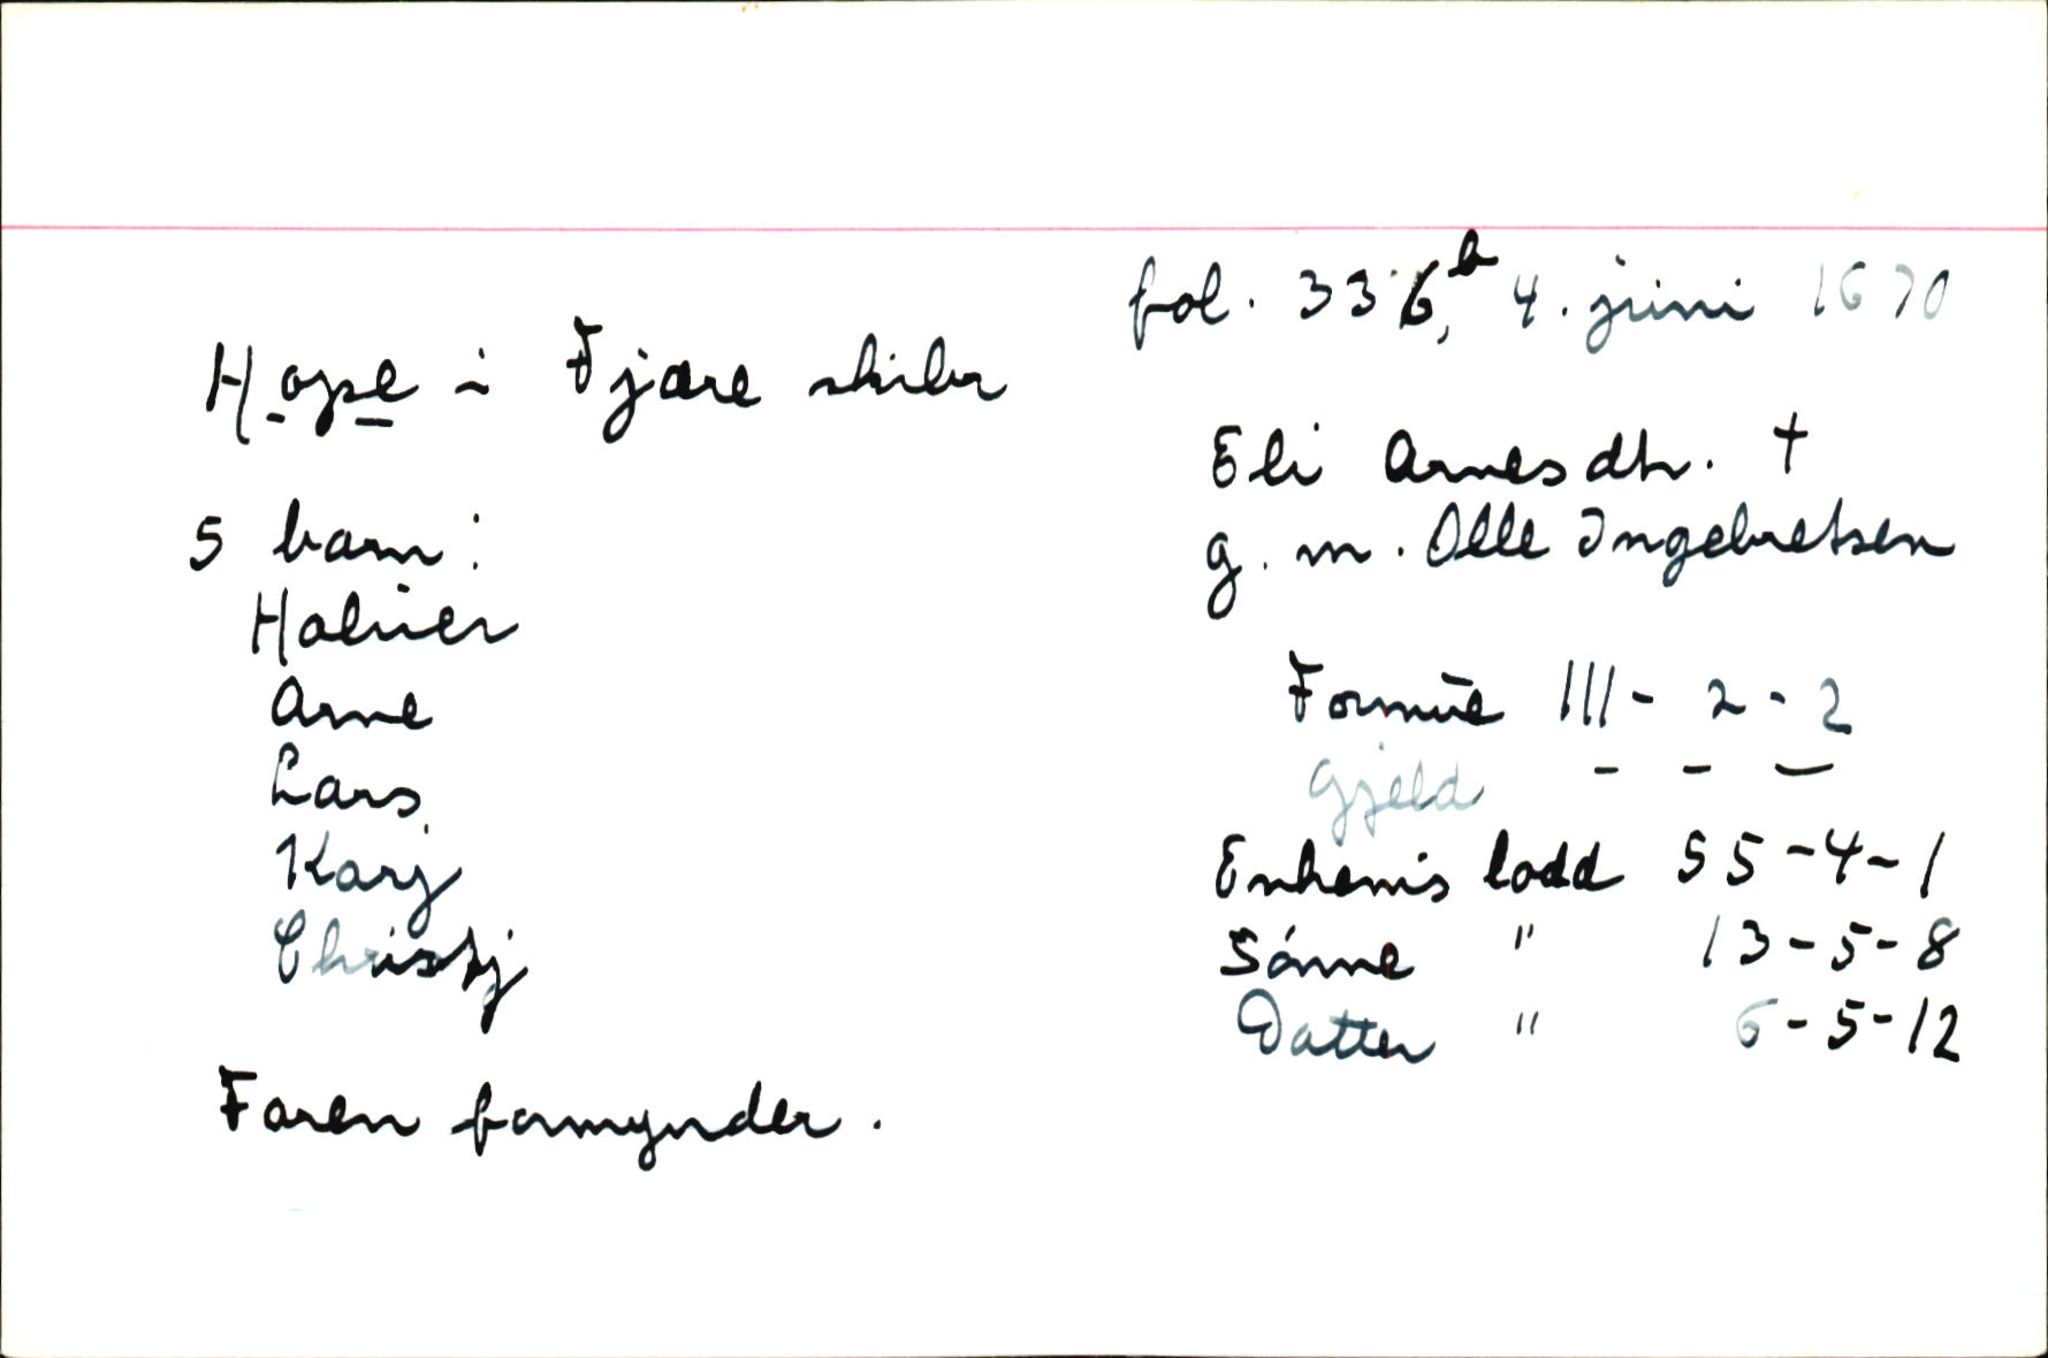 fol. 336,b 4. juni 1670
Hope i Fjære skibr
Eli Arnesdtr. †
g. m. Olle Ingebretsen
5 barn:
Haluer
Arne
Lars
Karj
Christj
Formue 111 - 2 - 2
Gjeld - - -
Enkens lodd 55 - 4 - 1
Sønne " 13 - 5 - 8
Datter " 6 - 5 - 12
Faren formynder.